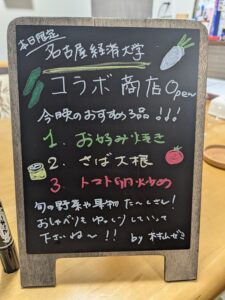 本日限定
名古屋経済大学
コラボ商店Open
今晩のおすすめ3品!!!
1. お好み焼き
2. さば大根
3. トマトの卵炒め
旬の野菜や果物た〜くさん!
おしゃべりもゆっくりしていって
下さいね〜!!
by